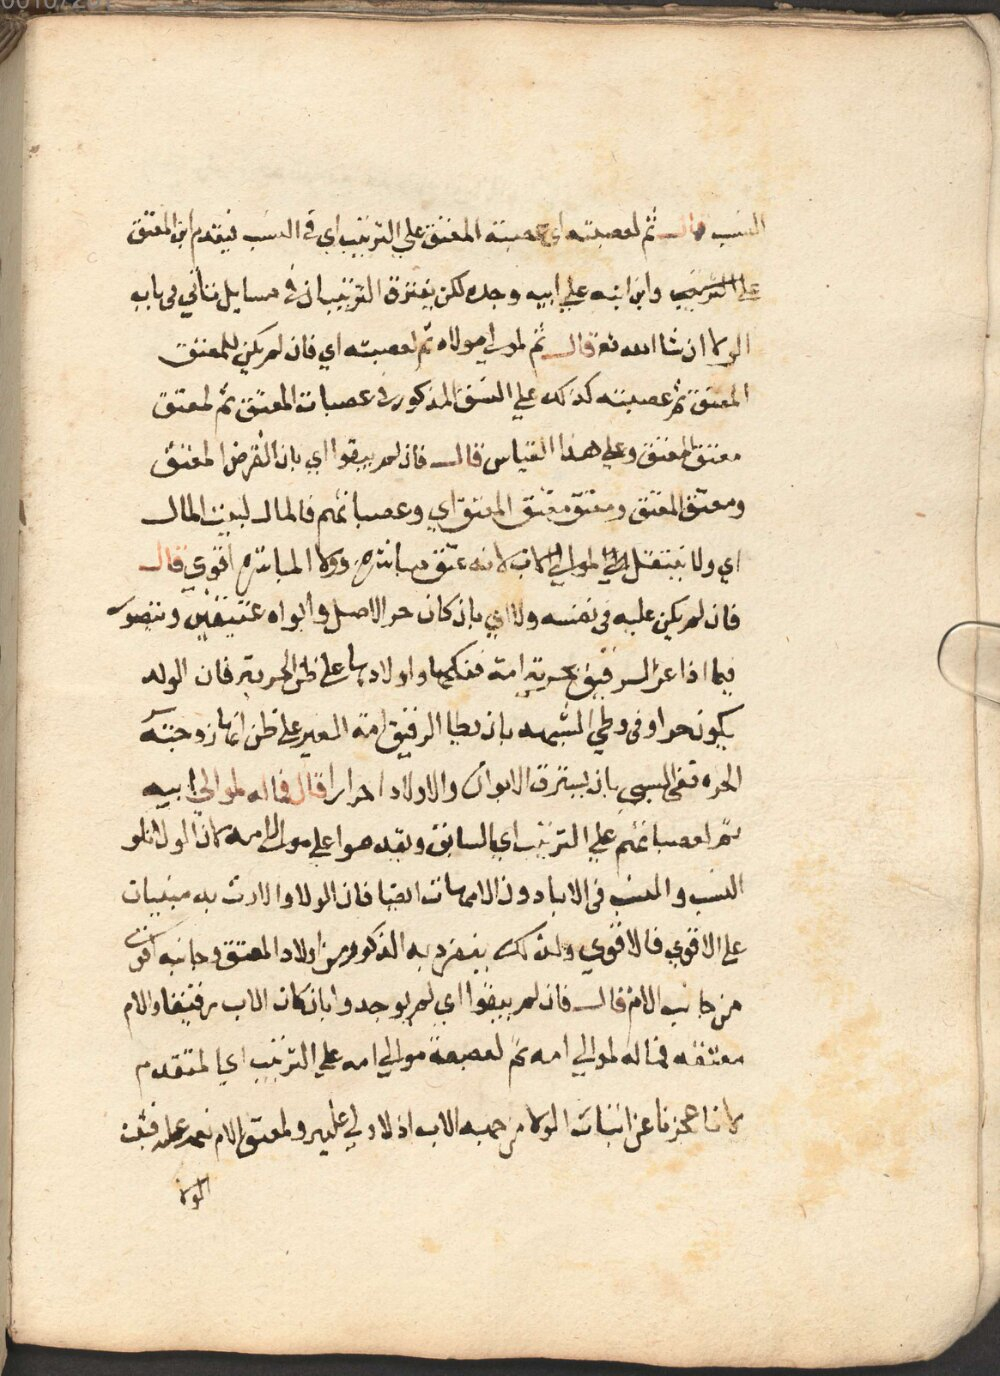 النسب قال ثم لعصبته اي عصبة المعتق علي الترتيب اي في النسب فيقدم ابن المعتق
علي الترتيب وابن ابنه علي ابيه وجده لكن يفترق الترتيبان في مسايل تاتي في باب
الولا ان شا الله تع قال ثم لمولي مولاه ثم لعصبته اي فان لم يكن للمعتق
المعتق ثم عصبته كذلك علي النسق المذكور في عصبات المعتق ثم لمعتق
معتق المعتق وعلي هذا القياس قال فان لم يبقوا اي بان انقرض المعتق
ومعتق المعتق ومعتق معتق المعتق اي وعصباتهم فالمال لبيت المال
اي ولا ينتقل الي الموالي الاب لانه عتق مباشرة وولا المباشرة اقوي قال
فان لم يكن عليه في نفسه ولا اي بان كان حر الاصل وابواه عتيقين ويتصور
فيما اذا غر الرقيق بحرية امة فنكحها واولادها علي ظن الحرية فان الولد
يكون حرا وفي وطي الشبهه بان يطا الرقيق امة الغير علي ظن انها زوجته
الحره وفي السبي بان يسترق الابوان والاولاد احرارا قال فماله لموالي ابيه
ثم لعصباتهم علي الترتيب اي السابق ويقدموا علي موالي الامه لان الولا تلو
النسب والنسب في الابا دون الامهات ايضا فان الولا والارث به مبنيان
علي الاقوي فالاقوي ولذلك ينفرد به الذكور من اولاد المعتق وجانبه اقوي
من جانب الام قال فان لم يبقوا اي لم يوجدوا بان كان الاب رقيقا والام
معتقه فماله لموالي امه ثم لعصبة موالي امه علي الترتيب اي المتقدم
لانا عجزنا عن اثبات الولا من جهه الاب اذ لا ولي عليه ولمعتق الام نعمه عليه فثبت
الولا